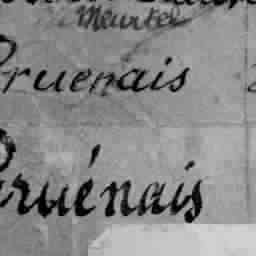 Meurtel
Pruenais
Pruénais